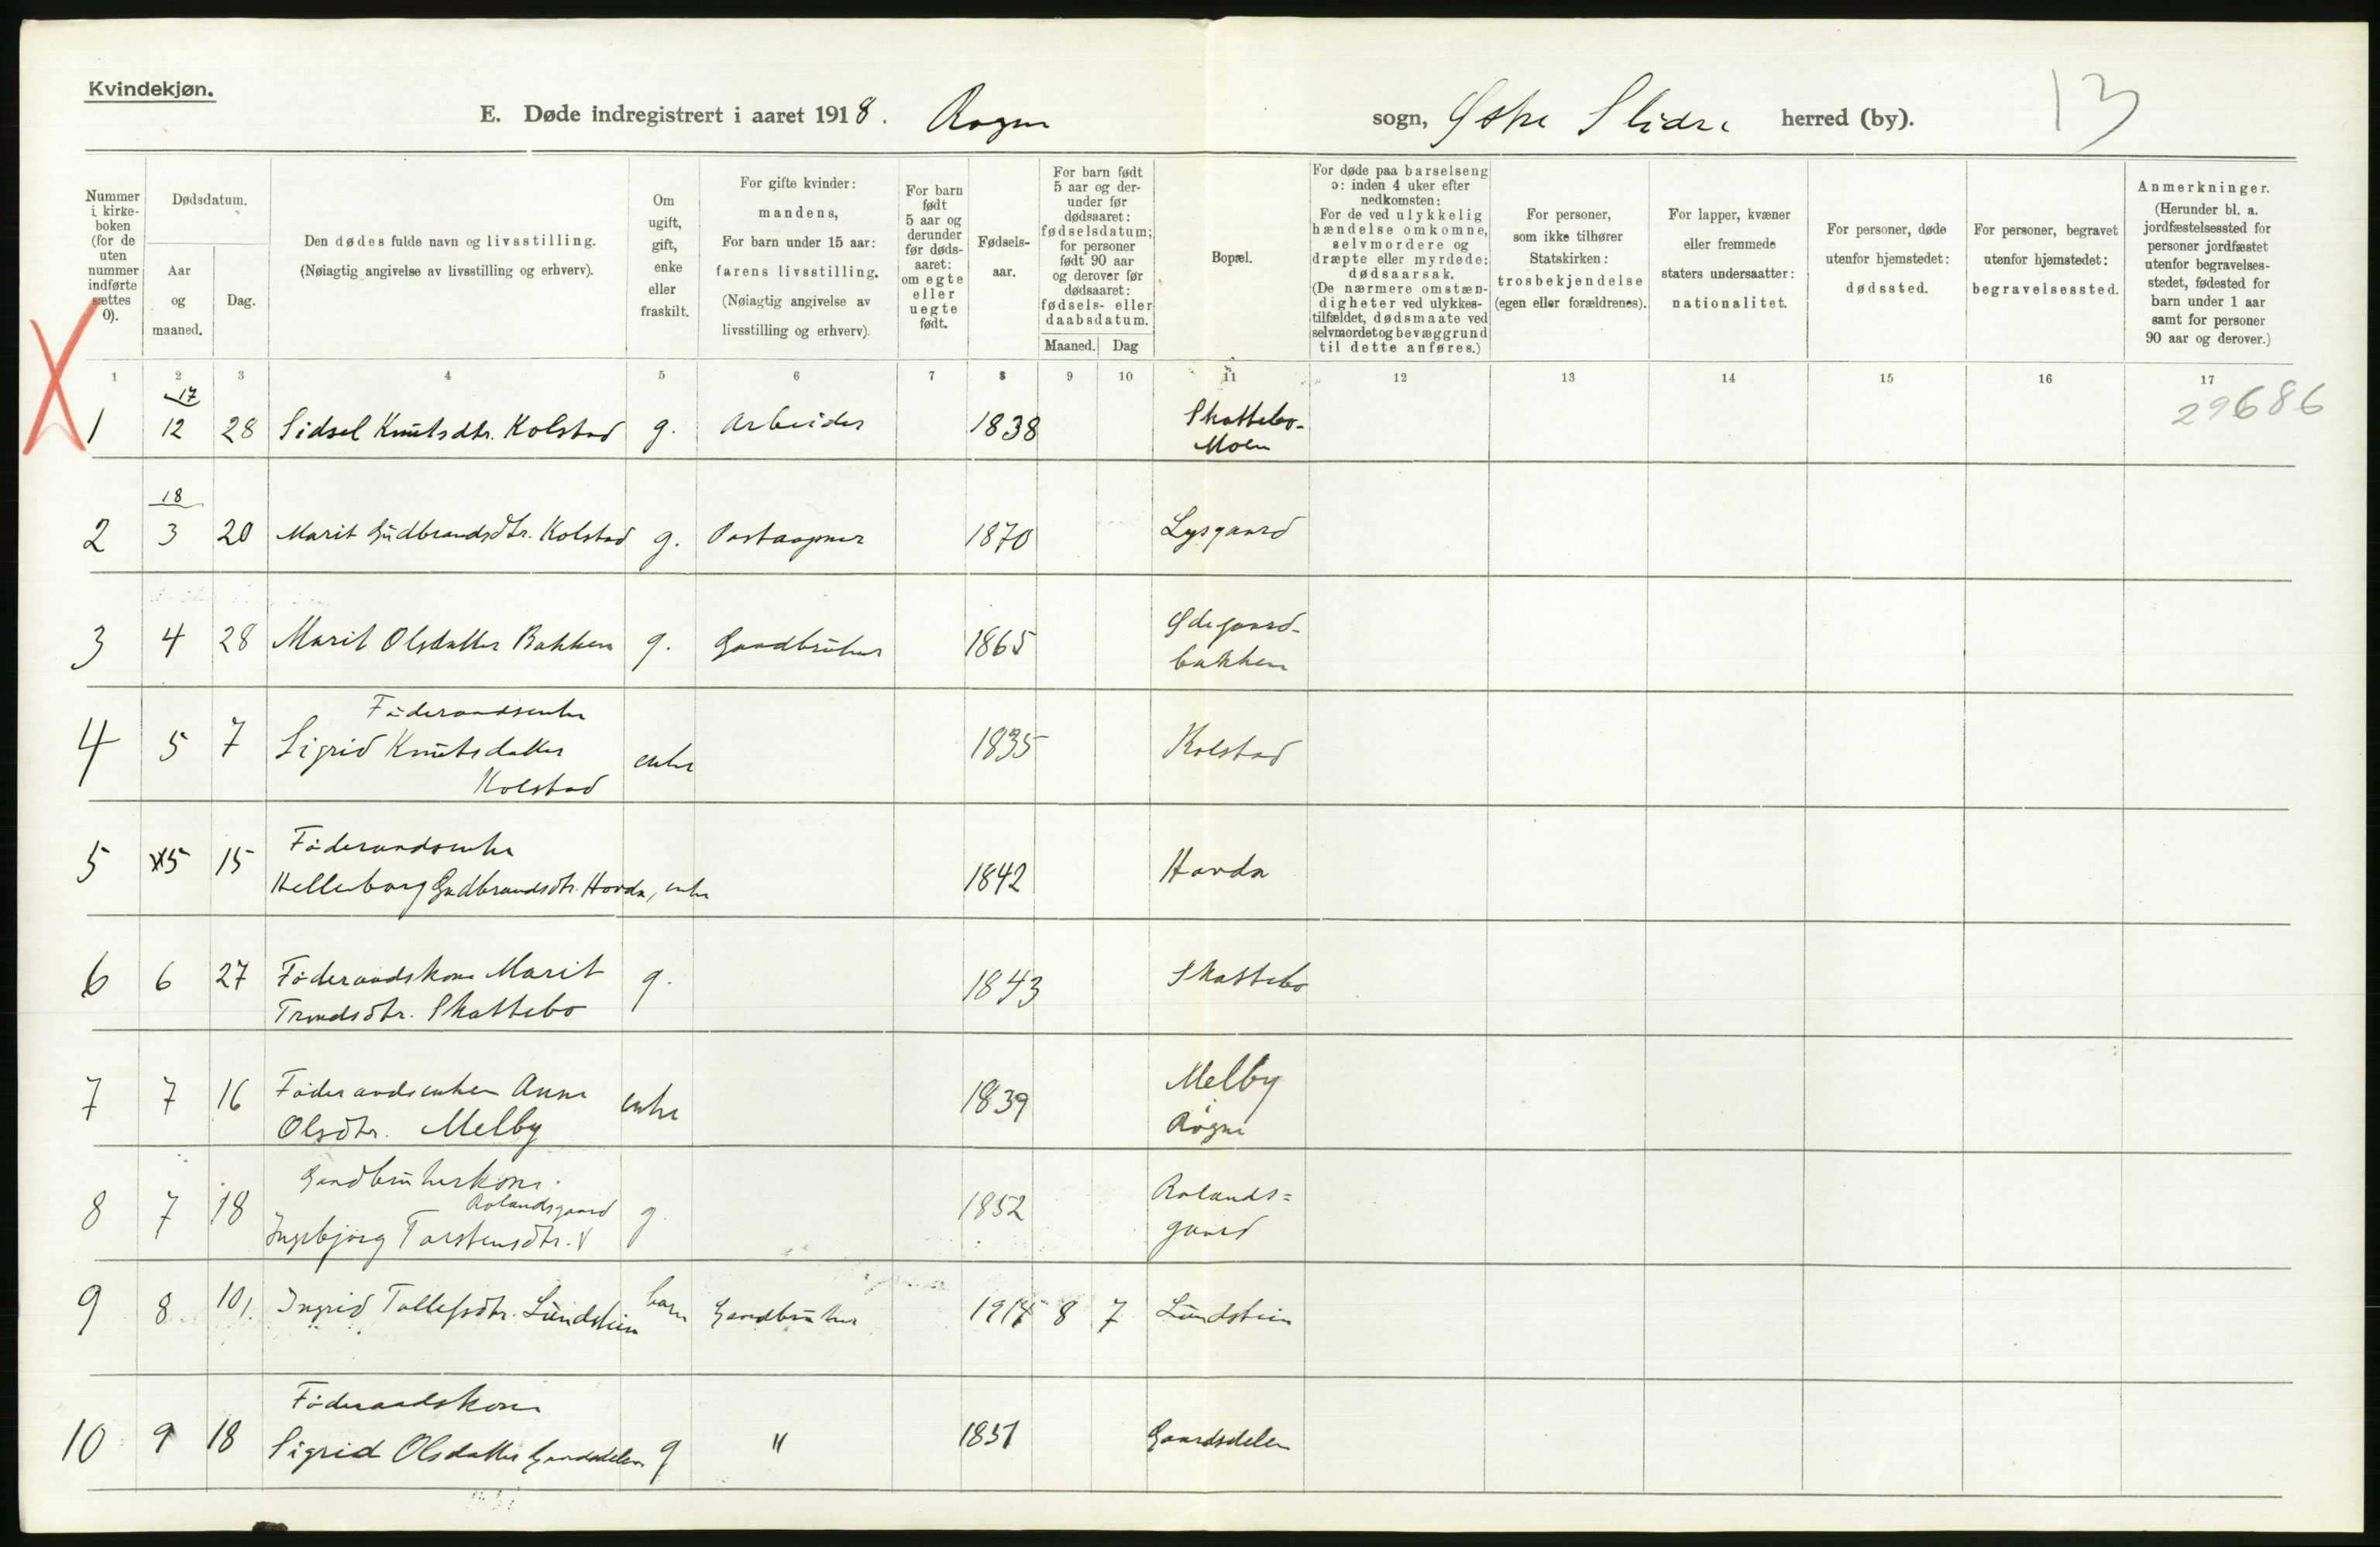 Kvindekjøn.
E. Døde indregistrert i aaret 1918. Rogne sogn, Østre Slidre herred (by).
13
Nummer i kirke- boken (for de uten nummer indførte sættes 0).
Dødsdatum.
Aar og maaned.
Dag.
Den dødes fulde navn og livsstilling.
(Nøiagtig angivelse av livsstilling og erhverv).
Om ugift, gift, enke eller fraskilt.
For gifte kvinder: mandens,
For barn under 15 aar: farens livsstilling.
(Nøiagtig angivelse av livsstilling og erhverv).
For barn født 5 aar og derunder før døds- aaret: om egte eller uegte født.
Fødsels- aar.
For barn født 5 aar og der- under før dødsaaret: fødselsdatum; for personer født 90 aar og derover før dødsaaret: fødsels- eller daabsdatum.
Maaned. Dag
Bopæl.
For døde paa barselseng ɔ: inden 4 uker efter nedkomsten:
For de ved ulykkelig hændelse omkomne, selvmordere og dræpte eller myrdede: dødsaarsak.
(De nærmere omstæn- digheter ved ulykkes- tilfældet, dødsmaate ved selvmordet og bevæggrund til dette anføres.)
For personer, som ikke tilhører Statskirken: trosbekjendelse (egen eller forældrenes).
For lapper, kvæner eller fremmede staters undersaatter: nationalitet.
For personer, døde utenfor hjemstedet: dødssted.
For personer, begravet utenfor hjemstedet: begravelsessted.
Anmerkninger.
(Herunder bl. a. jordfæstelsessted for personer jordfæstet utenfor begravelses- stedet, fødested for barn under 1 aar samt for personer 90 aar og derover.)
1 2 3 4 5 6 7 8 9 10 11 12 13 14 15 16 17
29686
17
1 12 28 Sidsel Knutsdtr. Kolstad g. Arbeider 1838 Skattebo-
Moen
18
2 3 20 Marit Gudbrandsdtr. Kolstad g. Postaapner 1870 Lysgaard
3 4 28 Marit Olsdatter Bakken g. Gardbruker 1865 Ødegaard-
bakken
Föderaadsenke
4 5 7 Sigrid Knutsdatter enke 1835 Kolstad
Kolstad
Föderaadsenke
5 5 15 Hellenborg Gudbrandsdtr. Hovda, enke 1842 Hovda
6 6 27 Föderaadskone Marit g. 1843 Skattebo
Trondsdtr. Skattebo
7 7 16 Föderaadsenken Anne enke 1839 Melby
Olsdtr. Melby Rogne
Gardbrukerkone
Rolandsgaard
8 7 18 Ingebjörg Torstensdtr. g. 1852 Rolands=
gaard
9 8 10 Ingrid Tollefsdtr. Lundstein barn Gardbruker 1914 8 7 Lundstein
Föderaadskone
10 9 18 Sigrid Olsdatter Gaardsdelen g " 1831 Gaardsdelen